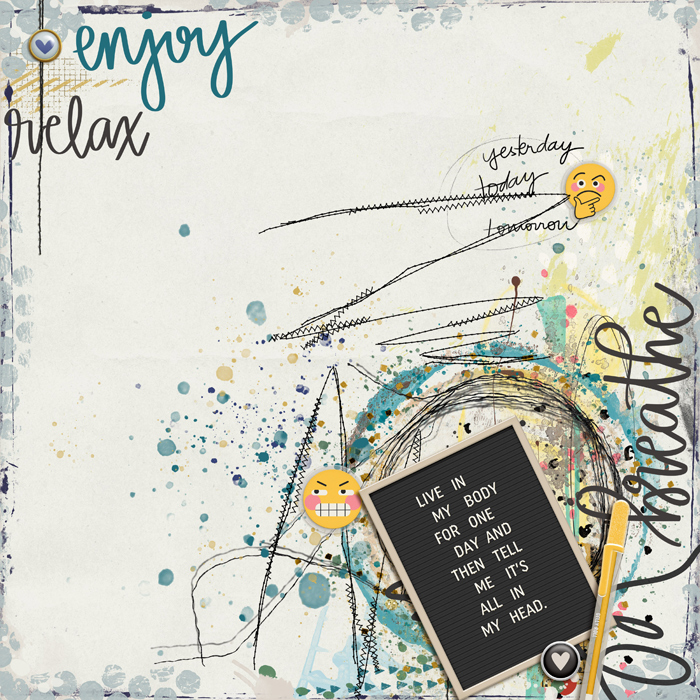 enjoy
relax
yesterday
today
tomorrow
breathe
LIVE IN
MY BODY
FOR ONE
DAY AND
THEN TELL
ME IT'S
ALL IN
MY HEAD.